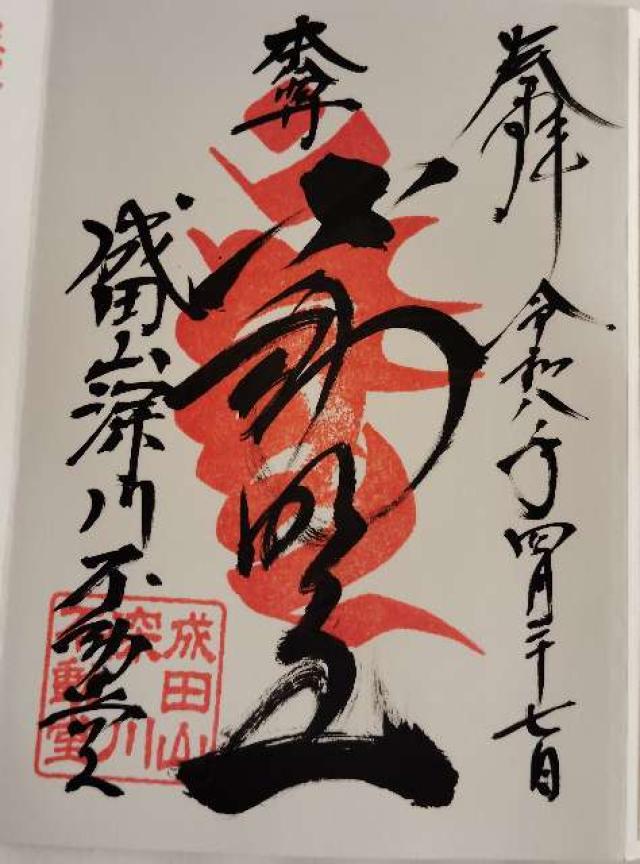 奉拝
令和八年四月二十七日
本尊
不動明王
成田山深川不動堂
成田山
深川
不動堂